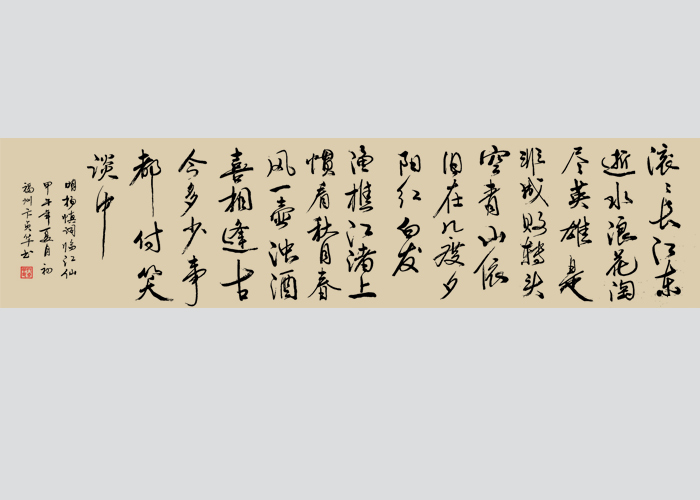 滚〻长江东
逝水浪花淘
尽英雄是
非成败转头
空青山依
旧在几度夕
阳红白发
渔樵江渚上
惯看秋月春
风一壶浊酒
喜相逢古
今多少事
都付笑
谈中
明杨慎词临江仙
甲午年夏月初